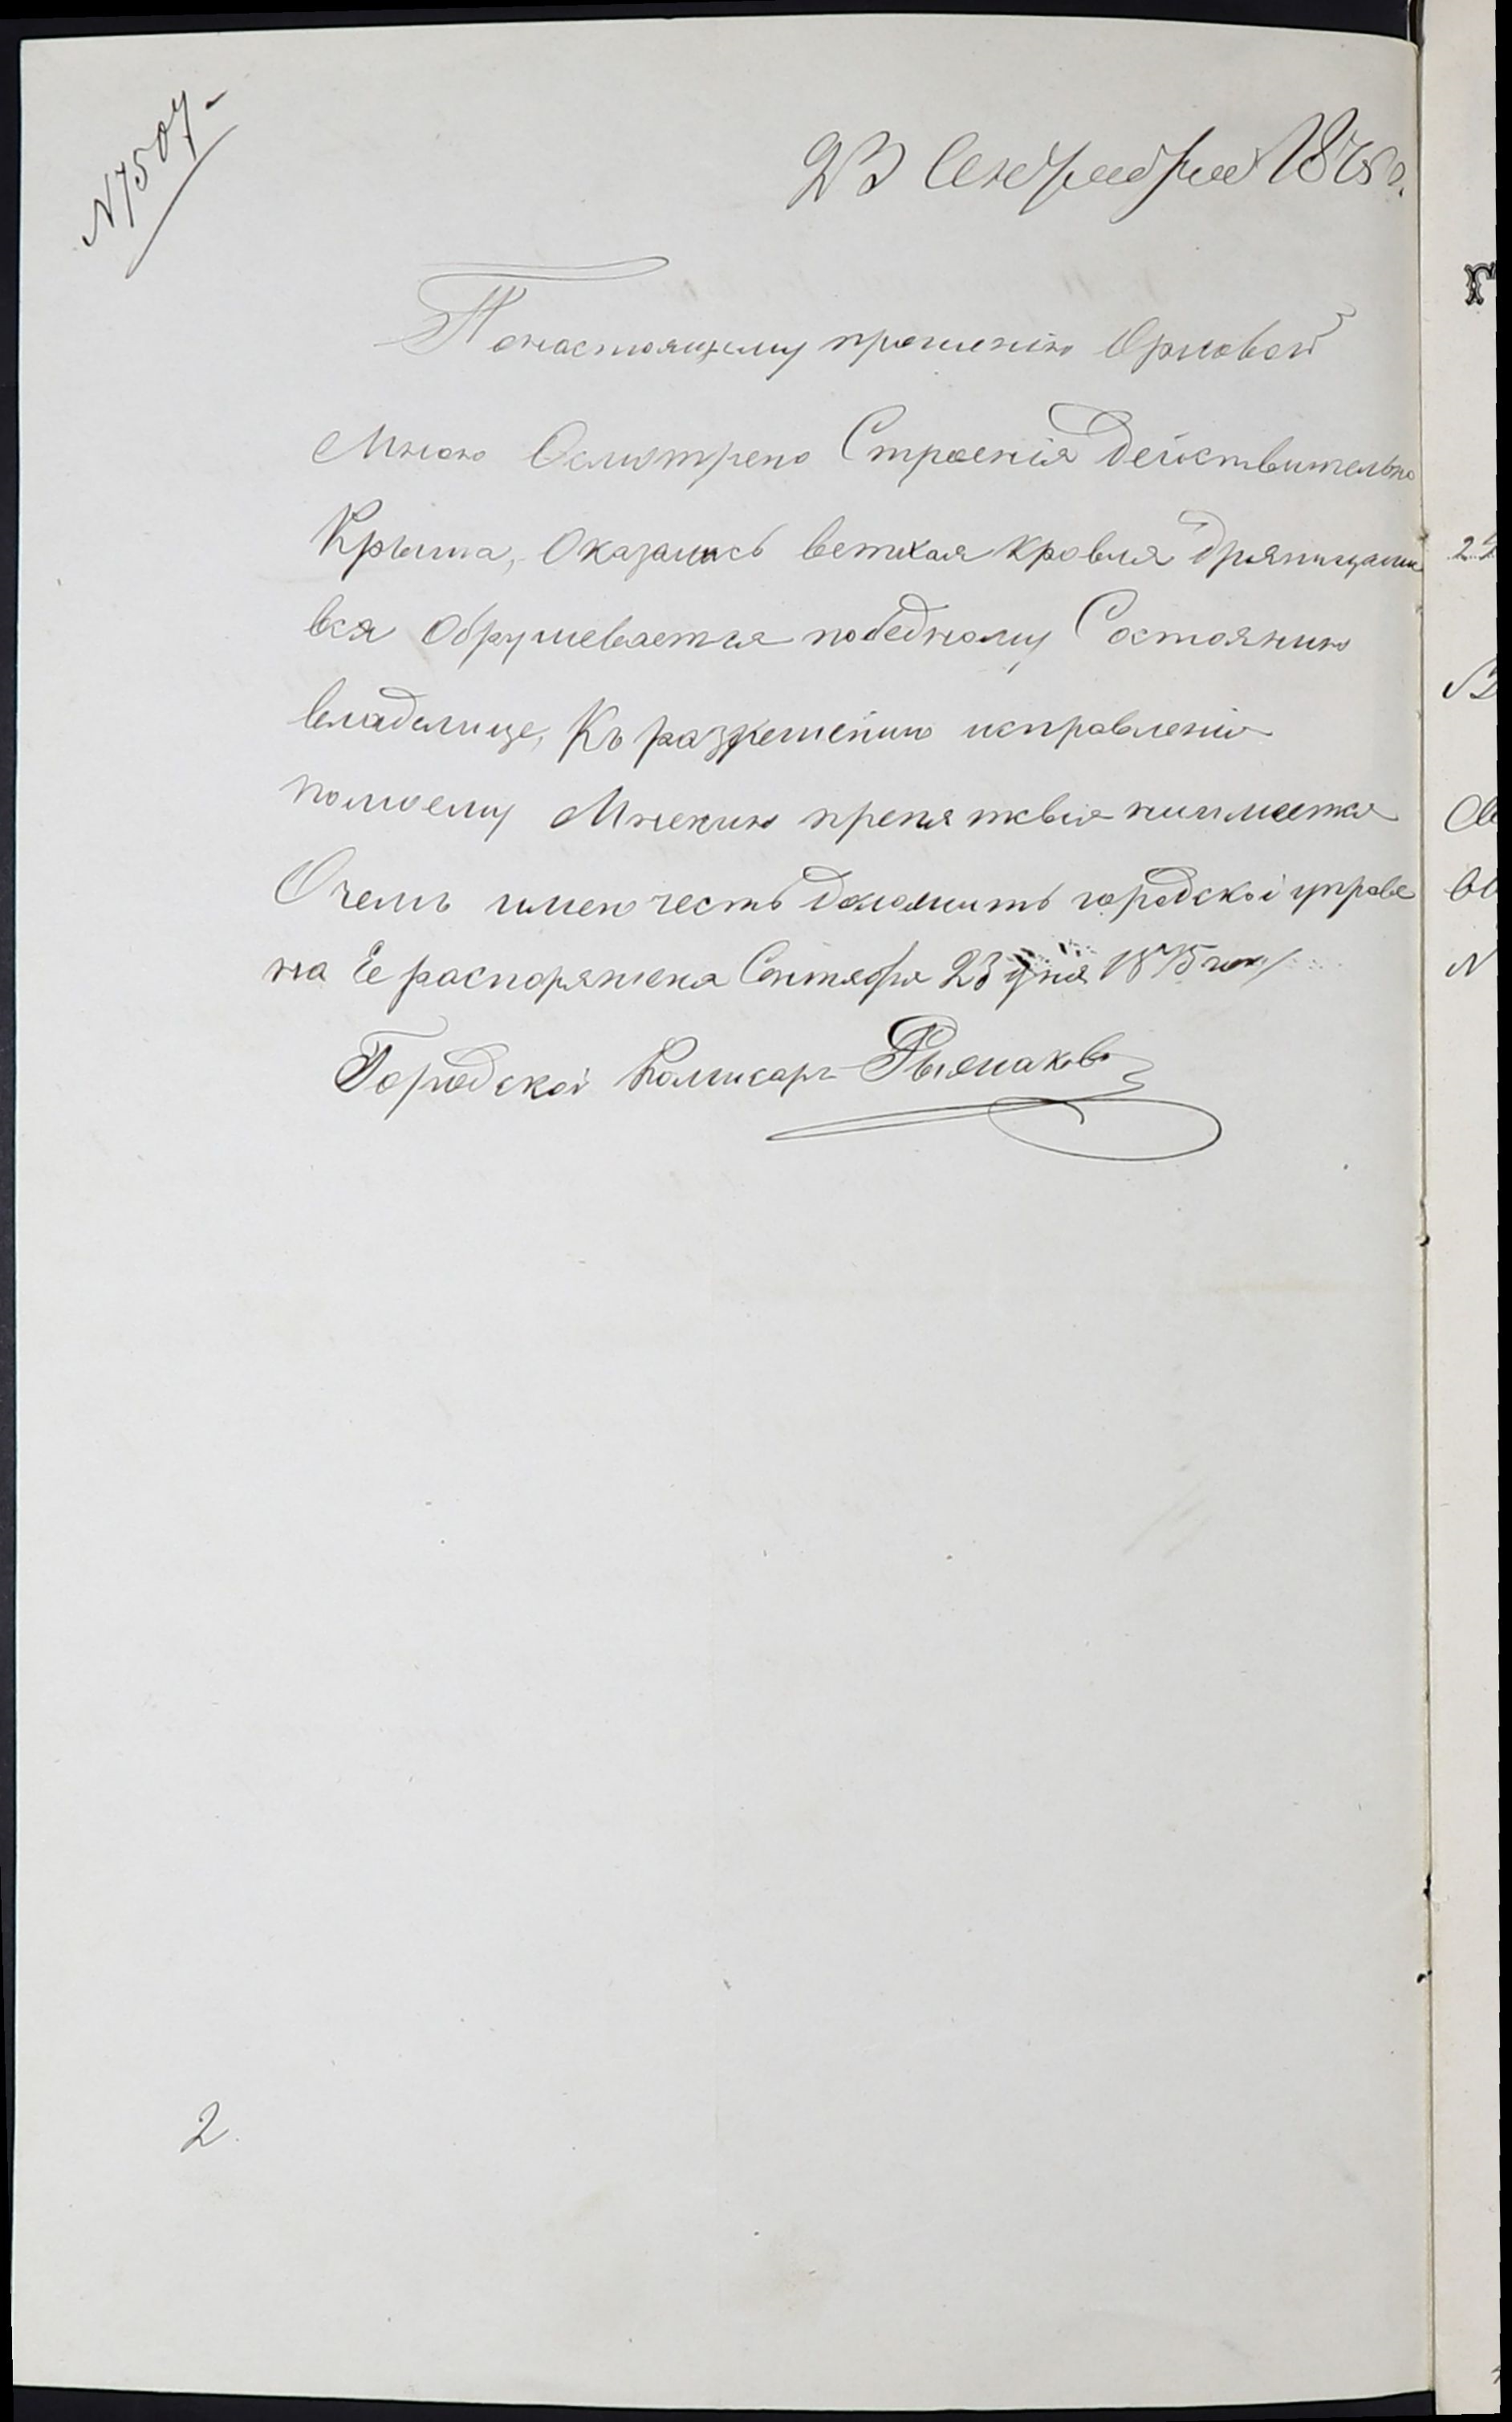 N 7507-
23 Сентября 1875 г.
Понастоящему прошенію Орловой
Мною Осмотрено Строенія действительно
Крыша, Оказалась ветхая кровля дряницами
вся Обрушевается победному Состоянию
владелице, Къ разрешению исправленію
помоему Мнению препятквия ниимеется
Очемъ имею честь доложить городской управе
на Ее распоряжения Сентября 23 дня 1875 года
Городской Комисаръ
2.